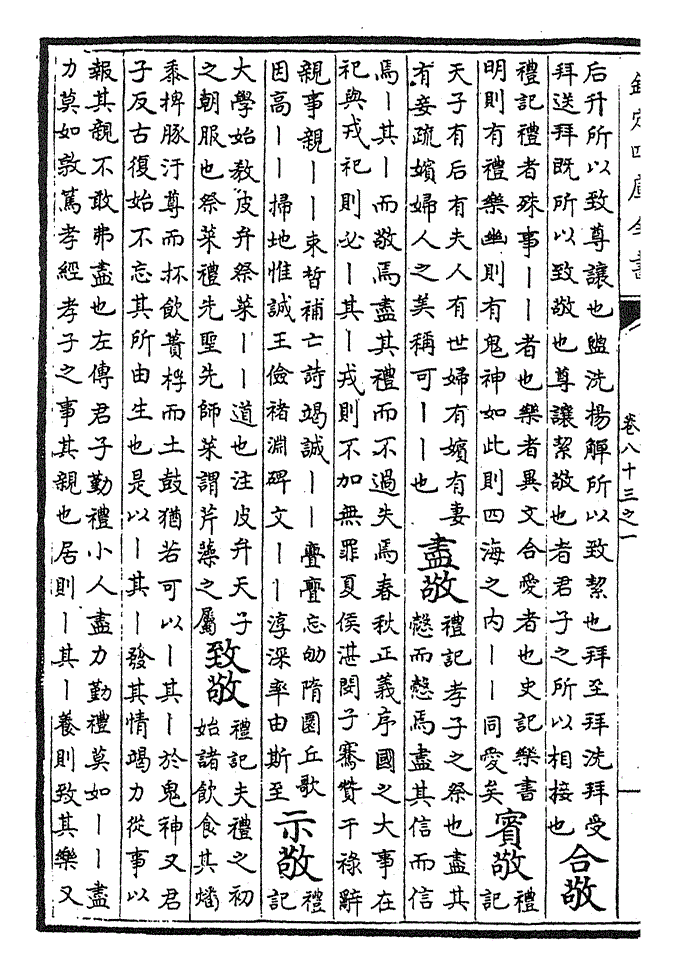 欽定四庫全書
卷八十三之一
后升所以致尊讓也盥洗揚觶所以致絜也拜至拜洗拜受
拜送拜既所以致敬也尊讓絜敬也者君子之所以相接也
合敬
禮記禮者殊事丨丨者也樂者異文合愛者也史記樂書
明則有禮樂幽則有鬼神如此則四海之內丨丨同愛矣
賓敬
禮
記
天子有后有夫人有世婦有嬪有妻
有妾疏嬪婦人之美稱可丨丨也
盡敬
禮記孝子之祭也盡其
慤而慤焉盡其信而信
焉丨其丨而敬焉盡其禮而不過失焉春秋正義序國之大事在
祀與戎祀則必丨其丨戎則不加無罪夏侯湛閔子騫贊干祿辭
親事親丨丨束晳補亡詩竭誠丨丨亹亹忘劬隋圜丘歌
因高丨丨掃地惟誠王儉褚淵碑文丨丨淳深率由斯至
示敬
禮
記
大學始教皮弁祭菜丨丨道也注皮弁天子
之朝服也祭菜禮先聖先師菜謂芹藻之屬
致敬
禮記夫禮之初
始諸飲食其燔
黍捭豚汙尊而抔飲蕢桴而土鼓猶若可以丨其丨於鬼神又君
子反古復始不忘其所由生也是以丨其丨發其情竭力從事以
報其親不敢弗盡也左傳君子勤禮小人盡力勤禮莫如丨丨盡
力莫如敦篤孝經孝子之事其親也居則丨其丨養則致其樂又